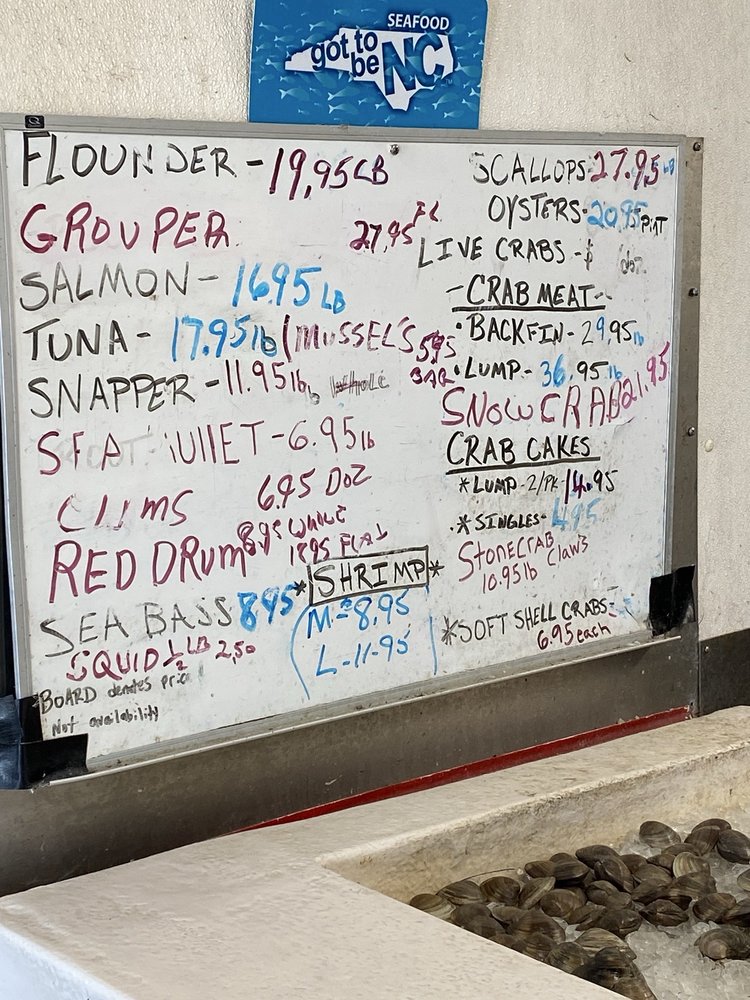 SEAFOOD
got to be NC
FLOUNDER - 19,95 LB
GROUPER 27,95 FL
SALMON - 16.95 LB
TUNA - 17.95 lb / MUSSEL'S 5.95 BAG
SNAPPER - 11.95 lb Whole
SEA MULLET - 6.95 lb
CLAMS 6.95 DOZ
RED DRUM 8.95 WHOLE
18.95 FLAT
SEA BASS 8.95
SQUID 1/2 LB 2,50
BOARD denotes price
Not availability
*SHRIMP*
M - 8,95
L - 11-95
SCALLOPS - 27.95 LB
OYSTERS - 20.95 PINT
LIVE CRABS - $ doz.
- CRAB MEAT -
• BACKFIN - 29,95 lb
• LUMP - 36.95 lb
SNOW CRAB 21.95
CRAB CAKES
* LUMP - 2/PK - 14.95
* SINGLES - 4.95
STONECRAB Claws
10.95 lb
* SOFT SHELL CRABS -
6.95 each